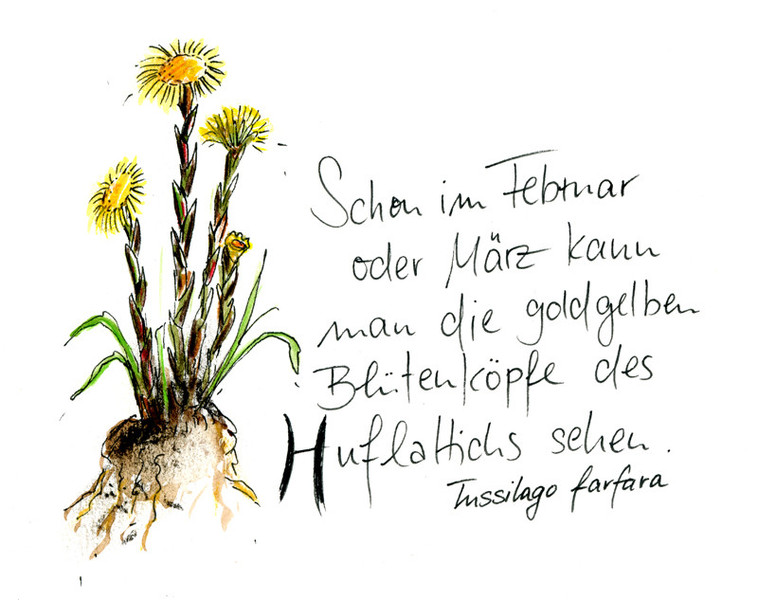 Schon im Februar
oder März kann
man die goldgelben
Blütenköpfe des
Huflattichs sehen.
Tussilago farfara